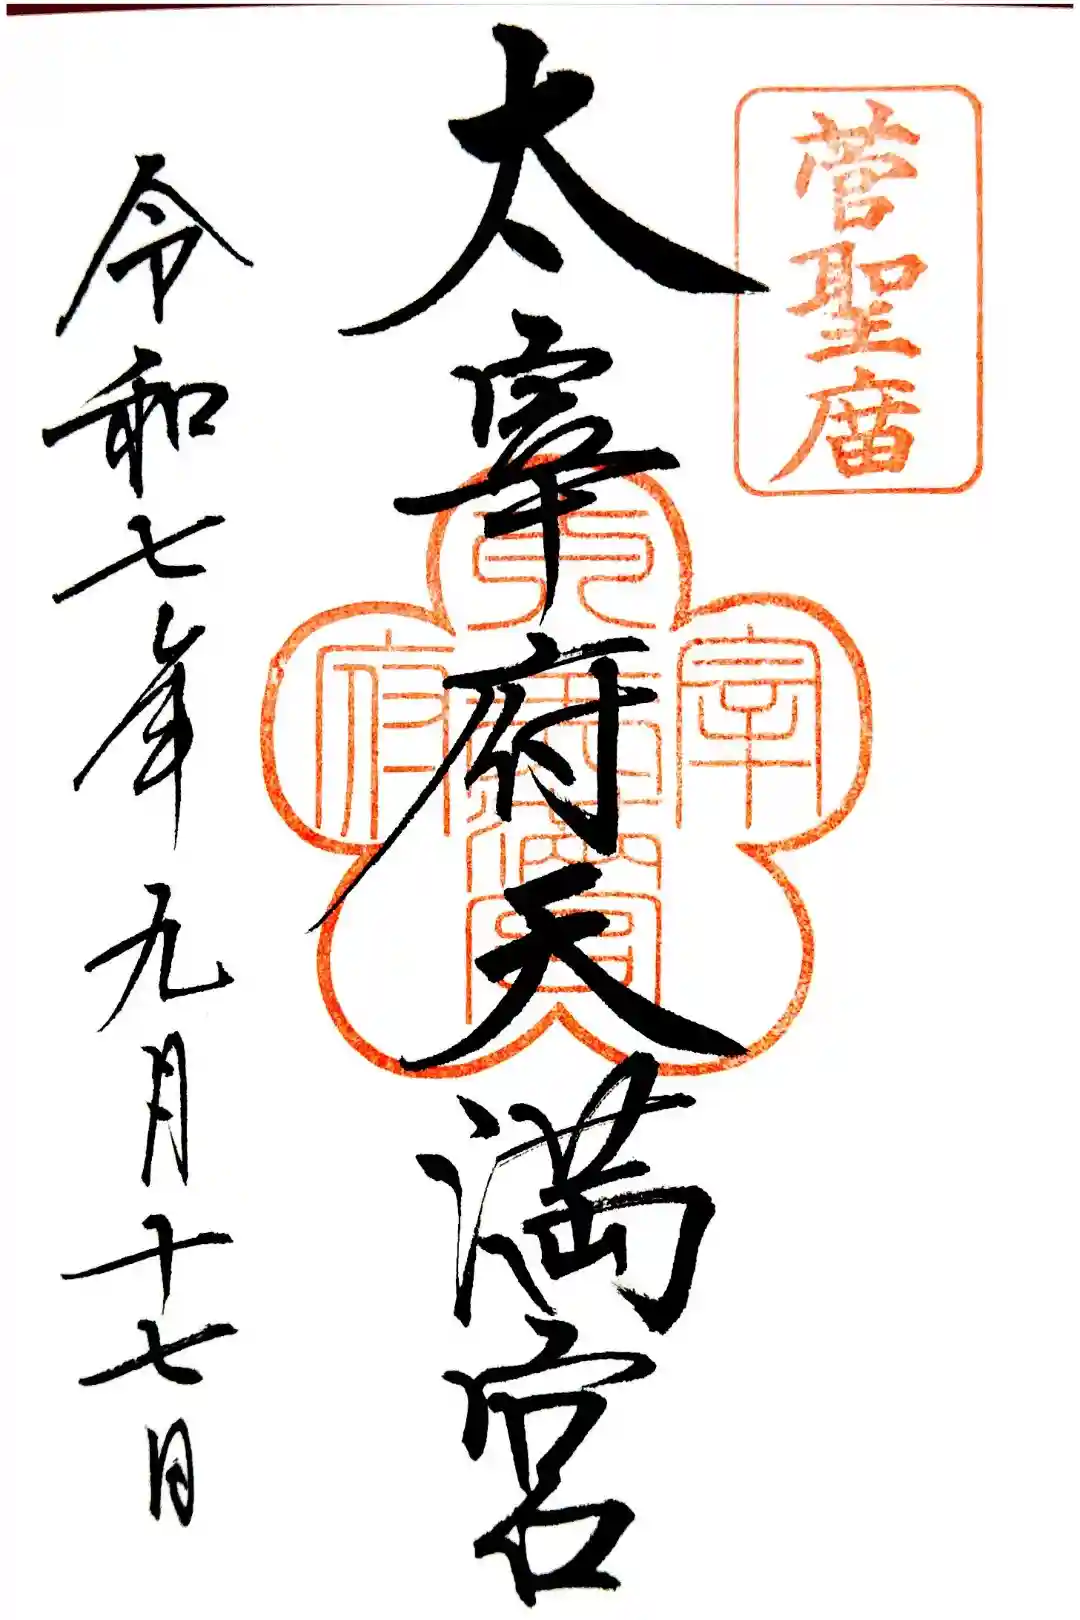 菅聖庿
太宰府天満宮
太宰府天満宮
令和七年九月十七日